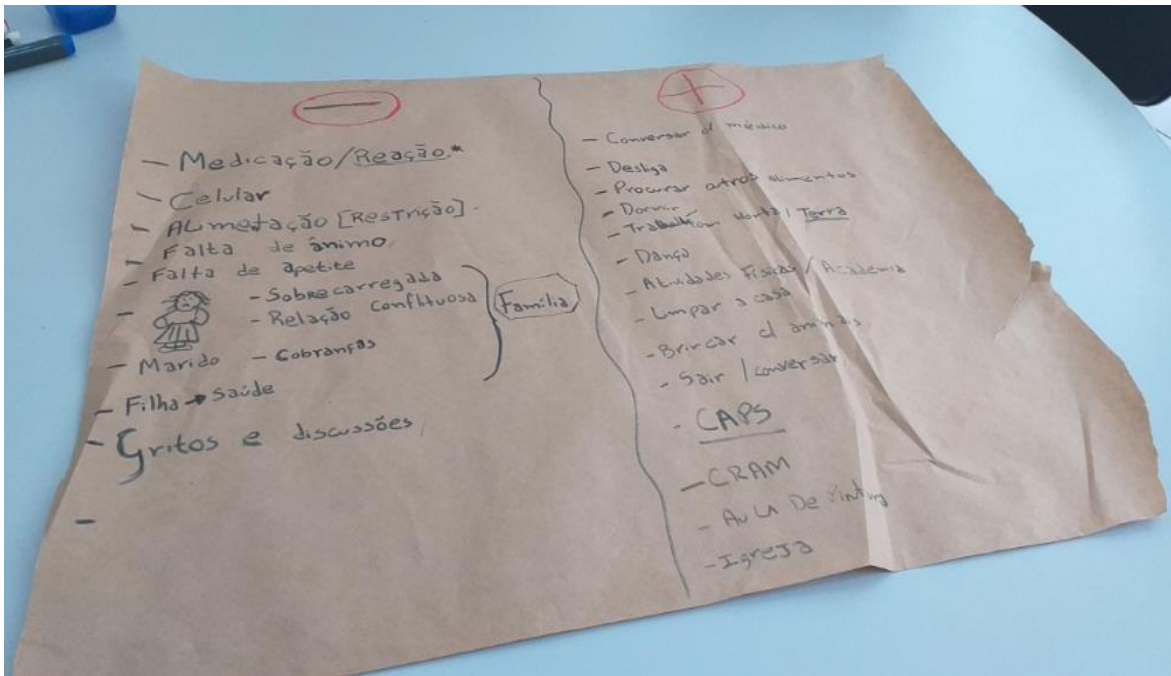 —
- Medicação/Reação.*
- Celular
- ALimetação [ResTrição].
- Falta de ânimo
- Falta de apetite
- - Sobrecarregada
- Relação conflituosa
Família
- Marido - Cobranças
- Filha → Saúde
- Gritos e discussões
-
+
- Conversar c/ médico
- Desliga
- Procurar outros alimentos
- Dormir
- Horta/Terra
- Dança
- Atividades Físicas / Academia
- Limpar a casa
- Brincar c/ animais
- Sair / conversar
- CAPS
- CRAM
- AuLA De Pintura
- Igreja